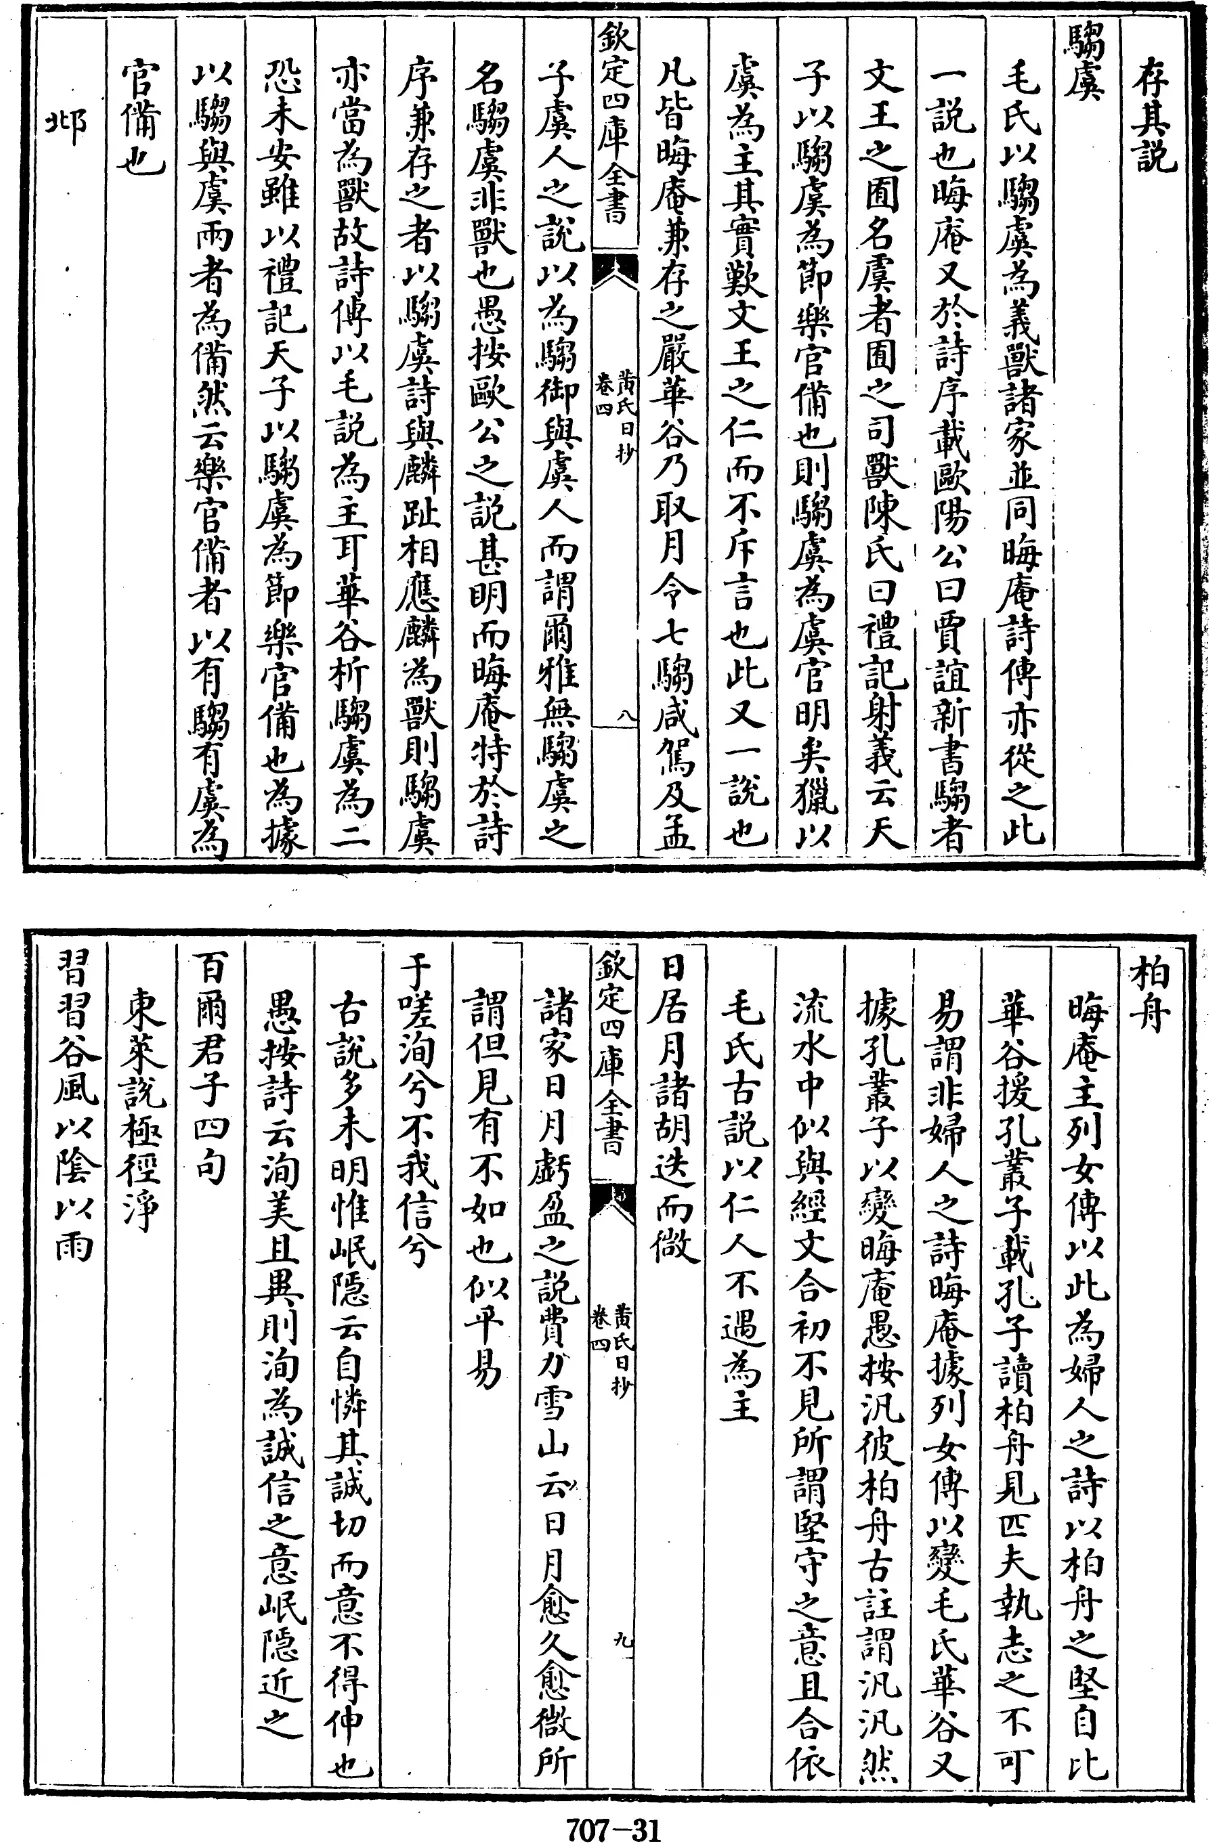 存其説
騶虞
毛氏以騶虞為義獸諸家並同晦庵詩傳亦從之此
一説也晦庵又於詩序載歐陽公曰賈誼新書騶者
文王之囿名虞者囿之司獸陳氏曰禮記射義云天
子以騶虞為節樂官備也則騶虞為虞官明矣獵以
虞為主其實歎文王之仁而不斥言也此又一説也
凡皆晦庵兼存之嚴華谷乃取月令七騶咸駕及孟
欽定四庫全書
黄氏日抄
卷四
八
子虞人之説以為騶御與虞人而謂爾雅無騶虞之
名騶虞非獸也愚按歐公之説甚明而晦庵特於詩
序兼存之者以騶虞詩與麟趾相應麟為獸則騶虞
亦當為獸故詩傳以毛説為主耳華谷析騶虞為二
恐未安雖以禮記天子以騶虞為節樂官備也為據
以騶與虞兩者為備然云樂官備者以有騶有虞為
官備也
邶
柏舟
晦庵主列女傳以此為婦人之詩以柏舟之堅自比
華谷援孔叢子載孔子讀柏舟見匹夫執志之不可
易謂非婦人之詩晦庵據列女傳以變毛氏華谷又
據孔叢子以變晦庵愚按汎彼柏舟古註謂汎汎然
流水中似與經文合初不見所謂堅守之意且合依
毛氏古説以仁人不遇為主
日居月諸胡迭而微
欽定四庫全書
黄氏日抄
卷四
九
諸家日月虧盈之説費力雪山云日月愈久愈微所
謂但見有不如也似平易
于嗟洵兮不我信兮
古説多未明惟岷隠云自憐其誠切而意不得伸也
愚按詩云洵美且異則洵為誠信之意岷隠近之
百爾君子四句
東萊説極徑淨
習習谷風以陰以雨
707-31